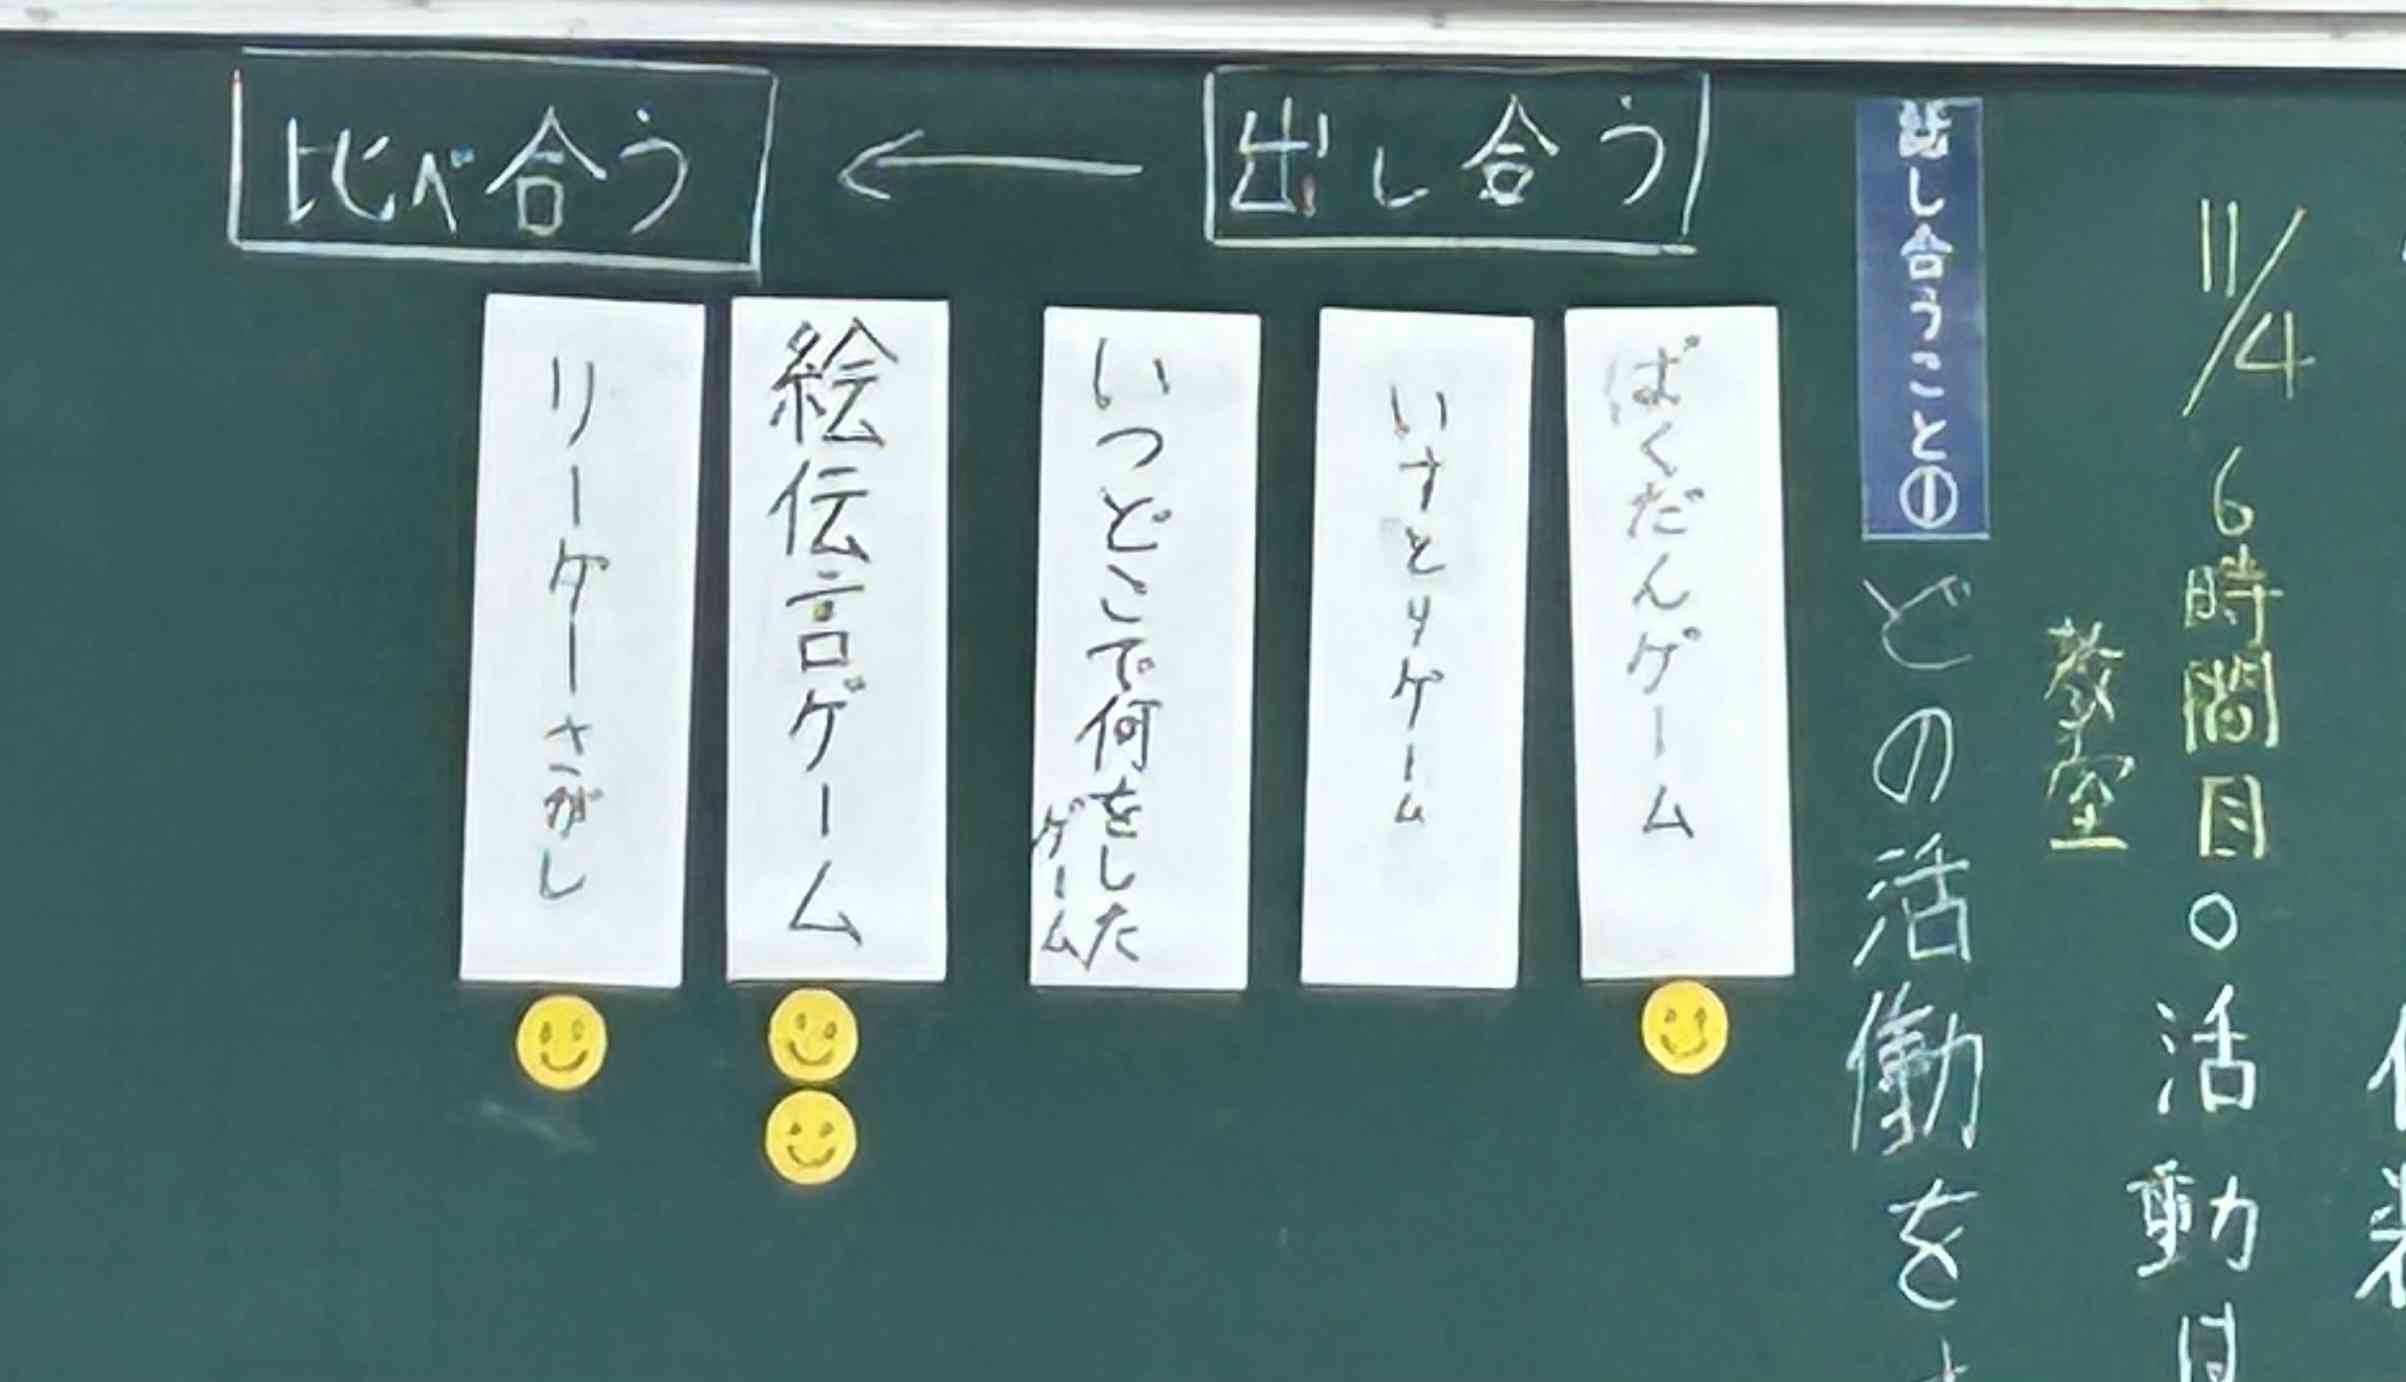 11/4 6時間目
教室
○活動は
話し合うこと① どの活動を
出し合う ← 比べ合う
ばくだんゲーム
いすとりゲーム
いつどこで何をした
ゲーム
絵伝言ゲーム
リーダーさがし